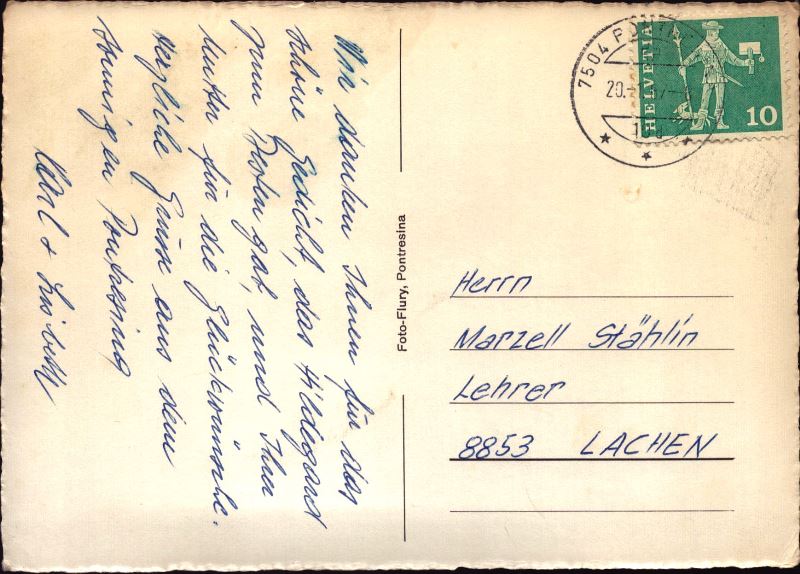 Wir danken Ihnen für das
schöne Gedicht, das Hildegard
zum Besten gab, und Ihrer
Mutter für die Glückwünsche.
Herzliche Grüsse aus dem
sonnigen Pontresina
Karl + Lisbeth
Foto-Flury, Pontresina
7504 PONT
20.
HELVETIA
10
Herrn
Marzell Stählin
Lehrer
8853 LACHEN